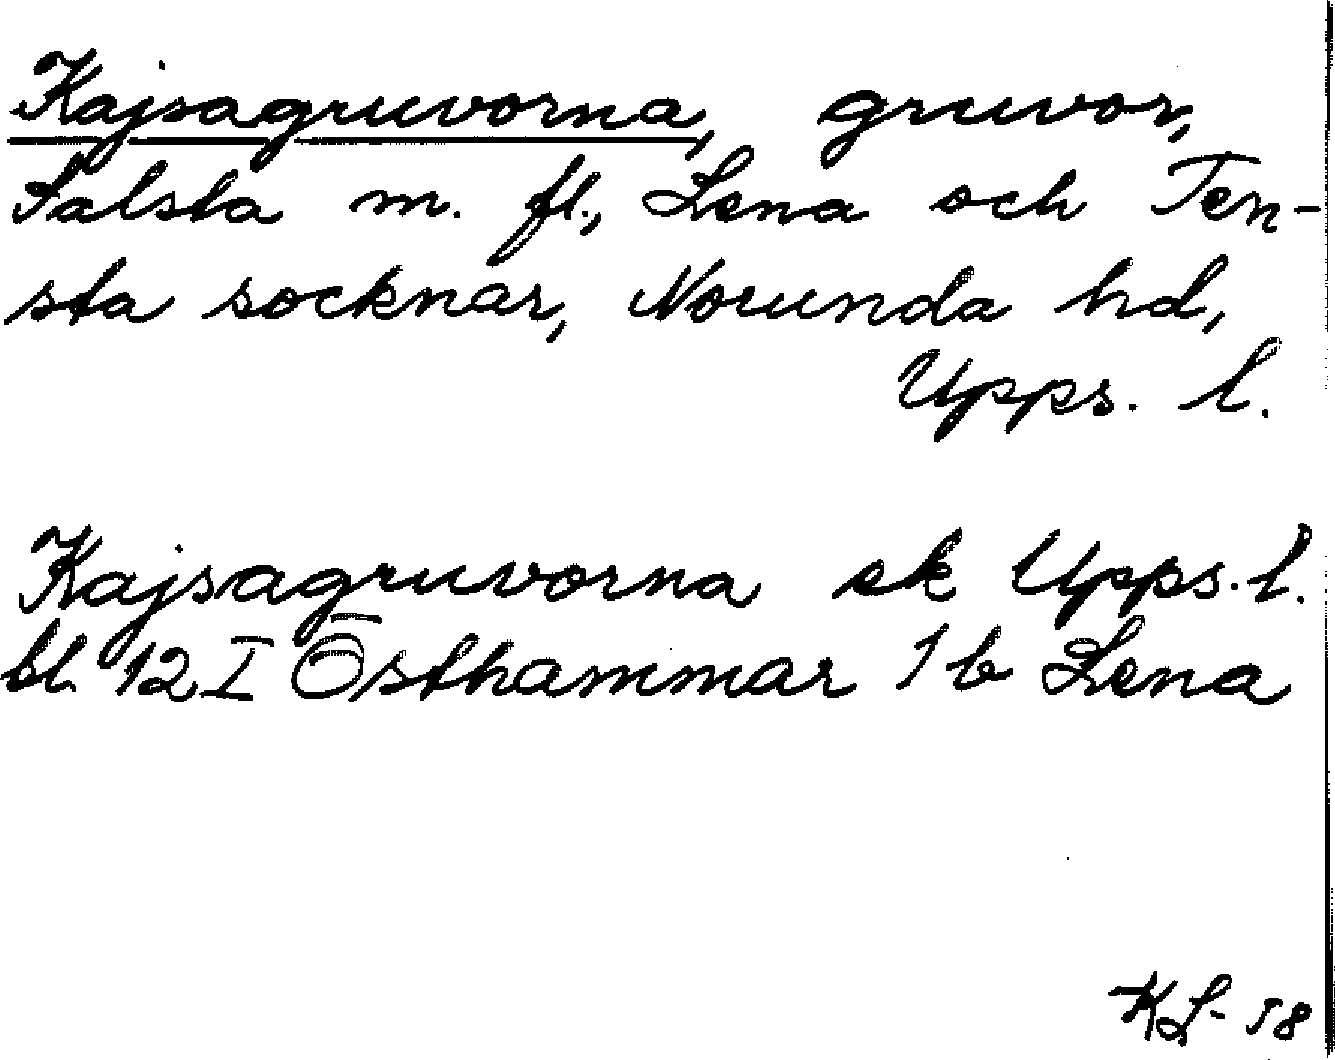 Kajsagruvorna, gruvor,
Salsta m. fl., Lena och Ten-
sta socknar, Norunda hd,
Upps. l.
Kajsagruvorna ek Upps. l.
bl. 12 I Östhammar 1 b Lena
KL- 58